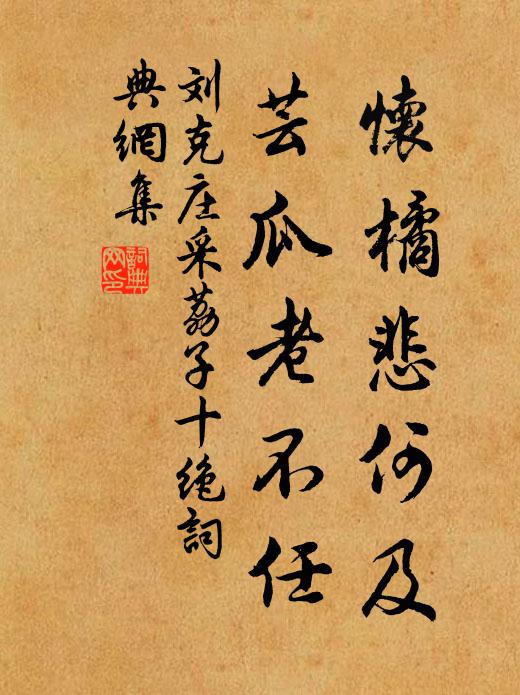 懷橘悲何及
芸瓜老不任
刘克庄采荔子十绝詞
典網集
詞典網印